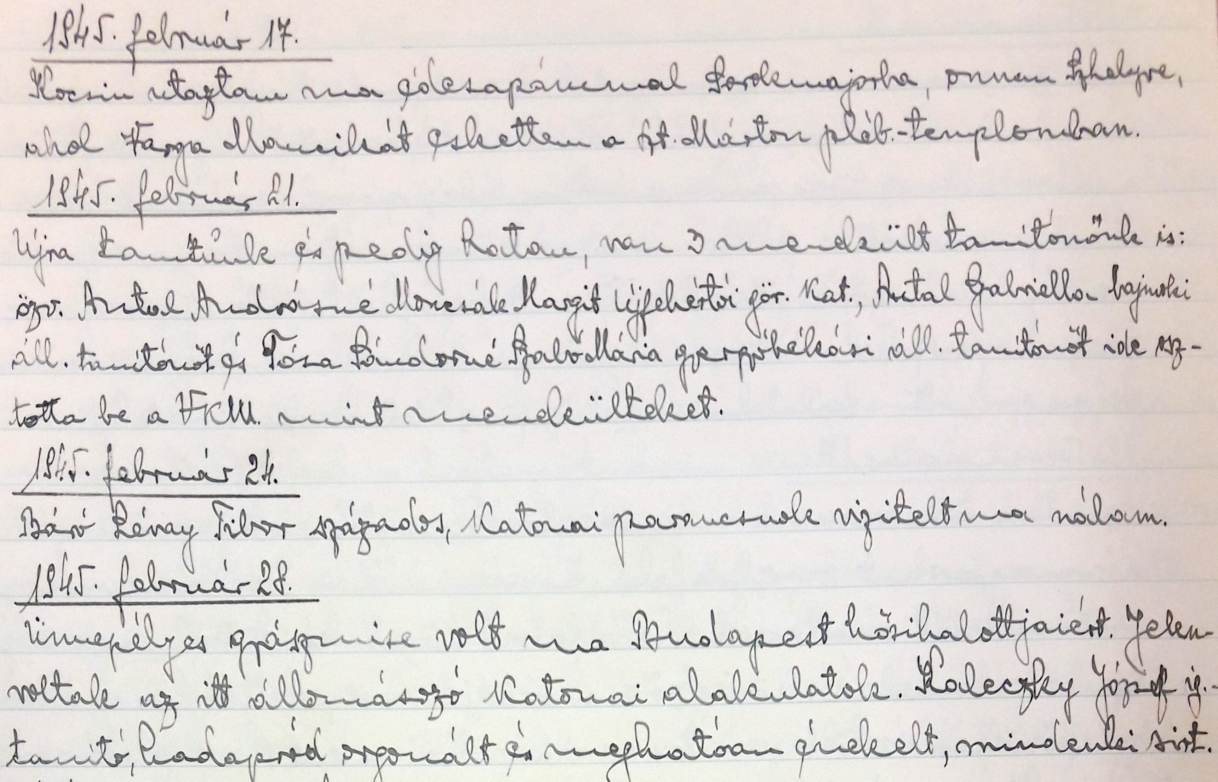 1945. február 17.
Kocsin utaztam ma édesapámmal Sorokmajorba, onnan Szhelyre,
ahol Varga Mancikát eskettem a szt. Márton pléb.-templomban.
1945. február 21.
Újra tanítunk és pedig hatan, van 3 menekült tanítónőnk is:
özv. Antal Andrásné Moncsák Margit újfehértói gör. kat., Antal Gabriella bajnoki
áll. tanítónőt és Tósa Sándorné Szabó Mária áll. tanítónőt ide osz-
totta be a VKM. mint menekülteket.
1945. február 24.
Báró Lévay Tibor százados, katonai parancsnok vizitelt ma nálam.
1945. február 28.
Ünnepélyes gyászmise volt ma Budapest hősihalottjaiért. Jelen
voltak az itt állomásozó katonai alakulatok. Kaleczky József ig.-
tanító, hadapród orgonált és meghatóan énekelt, mindenki sírt.